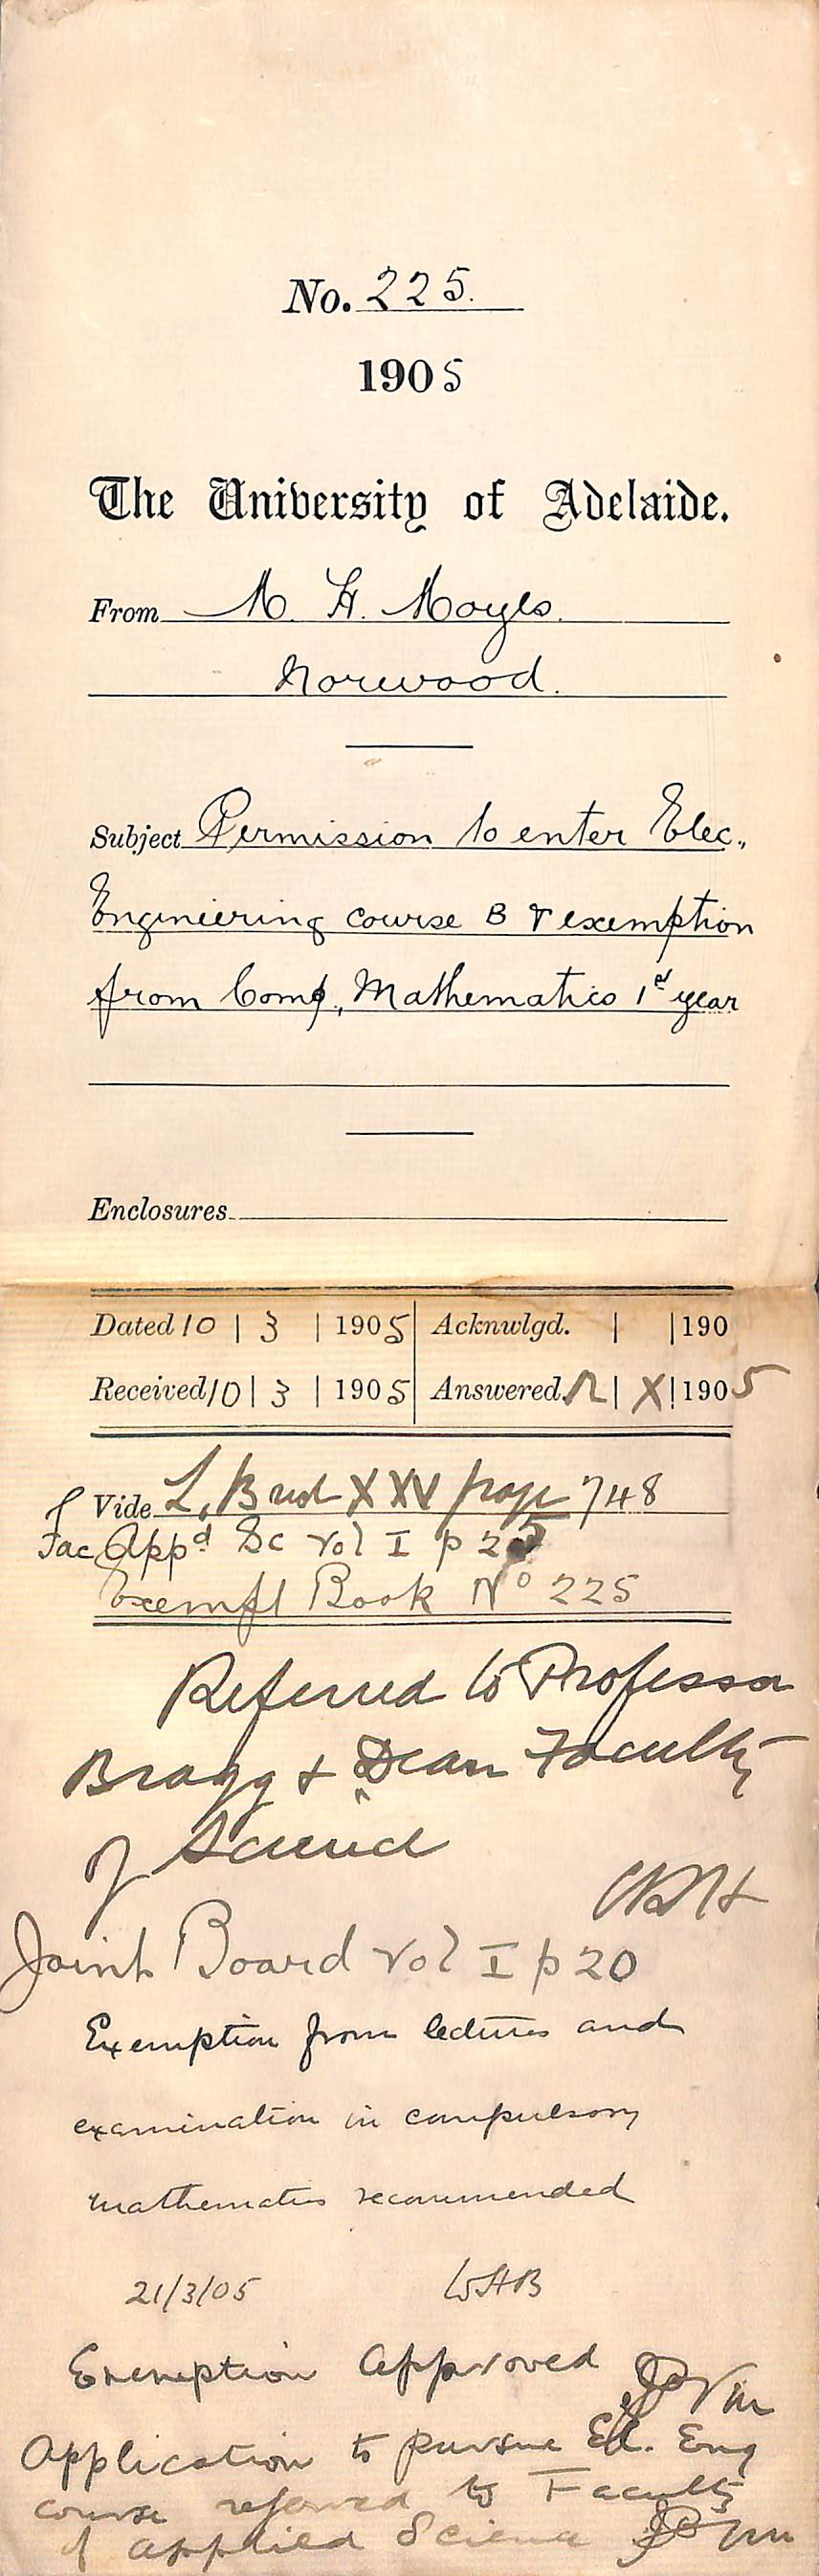 No. 225.
1905
The University of Adelaide.
From M. H. Moyes.
Norwood.
Subject Permission to enter Elec.,
Engineering course B & exemption
from Comp., Mathematics 1st year
Enclosures
Dated 10 | 3 | 1905 Acknwlgd. | | 190
Received 10 | 3 | 1905 Answered. | X | 1905
Vide L. Book XXV page 748
Fac App.d Sc Vol I p 25
Exempt Book No 225
Referred to Professor
Bragg & Dean Faculty
of Science
Joint Board Vol I p 20
Exemption from lectures and
examination in compulsory
mathematics recommended
21/3/05 WHB
Exemption Approved
Application to pursue El. Eng
course referred to Faculty
of Applied Science